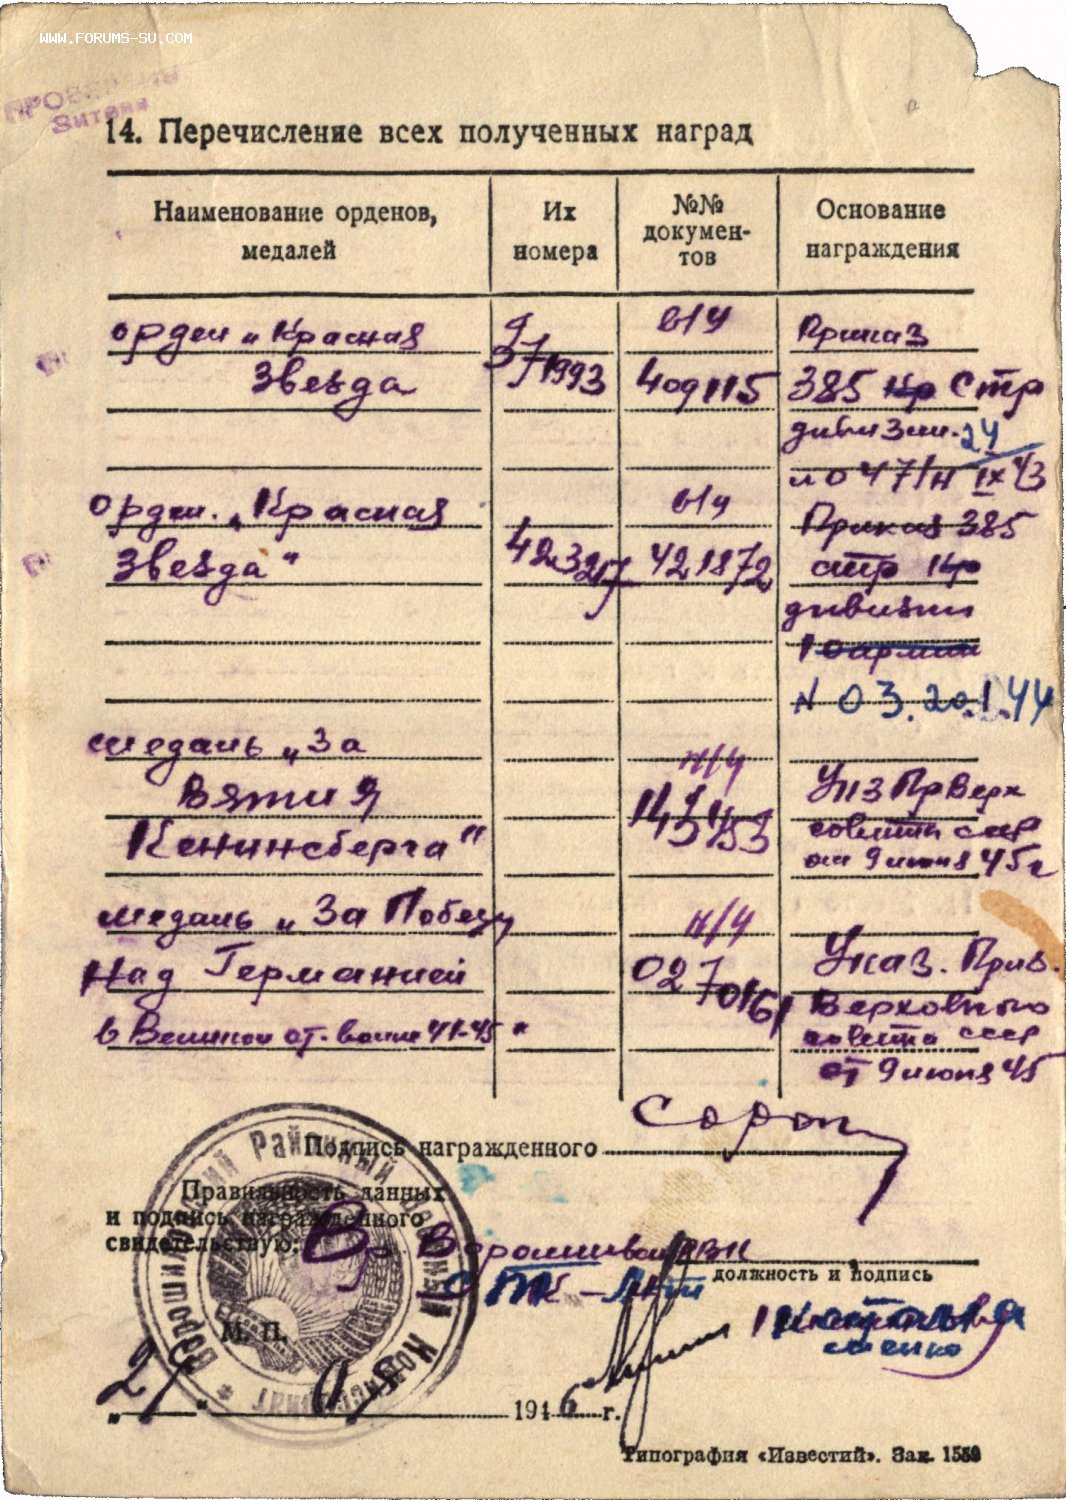 WWW.FORUMS-SU.COM
14. Перечисление всех полученных наград
Наименование орденов, медалей
Их номера
№№ докумен-тов
Основание награждения
орден „Красная
Звезда
1993
в/у
409115
Приказ
385 кр Стр
дивизии. 24
47/н IX 43
орден. „Красная
Звезда"
в/у
421872
Приказ 385
стр кр
дивизии
10 армии
N 03. 20.1.44
медаль „За
Взятия
Кенинсберга"
н/у
Указ Пр Верх
совета ссср
от 9 июня 45 г
медаль „За Победу
Над Германией
в Великой от. войне 41-45"
н/у
Указ. През.
Верховного
совета ссср
от 9 июня 45
Подпись награжденного
Правильность данных
и подпись награжденного
свидетельствую:
Вр
РВК
должность и подпись
М. П.
Районный Военный Комиссариат
194 6 г.
Типография «Известий». Зак. 1559